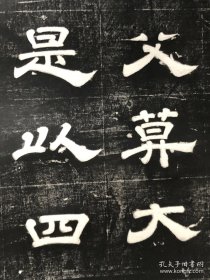 父莫大
是以四
孔夫子旧书网